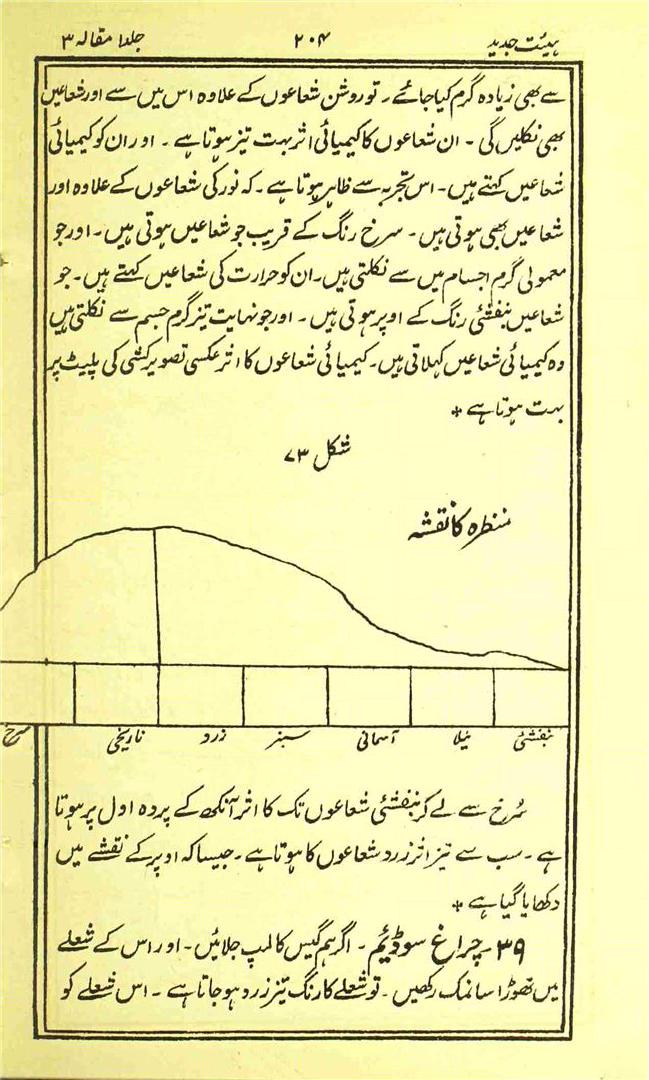 ہیئت جدید ۲۰۴ جلد۱ مقالہ ۳
سے بھی زیادہ گرم کیا جائے۔ تو روشن شعاعوں کے علاوہ اس میں سے اور شعاعیں
بھی نکلیں گی۔ ان شعاعوں کا کیمیائی اثر بہت تیز ہوتا ہے۔ اور ان کو کیمیائی
شعاعیں کہتے ہیں۔ اس تجربہ سے ظاہر ہوتا ہے۔ کہ نور کی شعاعوں کے علاوہ اور
شعاعیں بھی ہوتی ہیں۔ سرخ رنگ کے قریب جو شعاعیں ہوتی ہیں۔ اور جو
معمولی گرم اجسام میں سے نکلتی ہیں۔ ان کو حرارت کی شعاعیں کہتے ہیں۔ جو
شعاعیں بنفشئی رنگ کے اوپر ہوتی ہیں۔ اور جو نہایت تیز گرم جسم سے نکلتی ہیں
وہ کیمیائی شعاعیں کہلاتی ہیں۔ کیمیائی شعاعوں کا اثر عکسی تصویر کشی کی پلیٹ پر
بہت ہوتا ہے *
شکل ۷۳
منظرہ کا نقشہ
بنفشئی نیلا آسمانی سبز زرد نارنجی سرخ
سُرخ سے لے کر بنفشئی شعاعوں تک کا اثر آنکھ کے پردہ اول پر ہوتا
ہے۔ سب سے تیز اثر زرد شعاعوں کا ہوتا ہے۔ جیسا کہ اوپر کے نقشے میں
دکھایا گیا ہے *
۳۹۔ چراغ سوڈیئم۔ اگر ہم گیس کا لمپ جلائیں۔ اور اس کے شعلے
میں تھوڑا سا نمک رکھیں۔ تو شعلے کا رنگ تیز زرد ہو جاتا ہے۔ اس شعلے کو